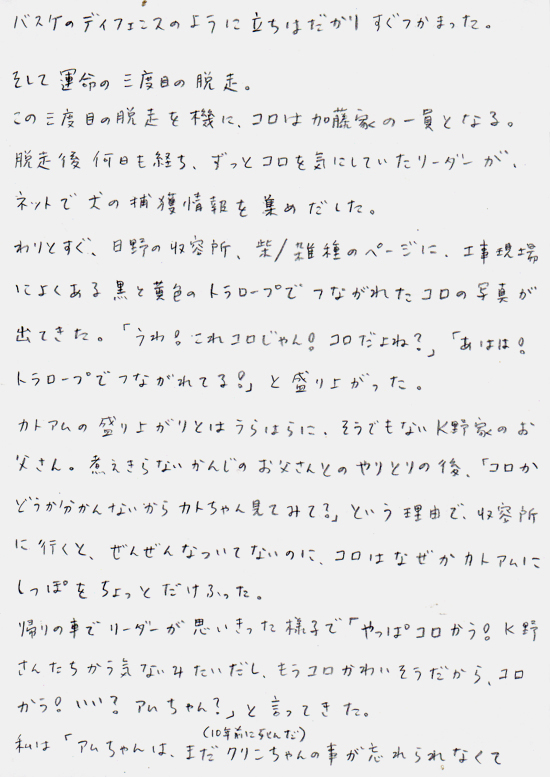 バスケのディフェンスのように立ちはだかりすぐつかまった。
そして運命の三度目の脱走。
この三度目の脱走を機に、コロは加藤家の一員となる。
脱走後何日も経ち、ずっとコロを気にしていたリーダーが、
ネットで犬の捕獲情報を集めだした。
わりとすぐ、日野の収容所、柴/雑種のページに、工事現場
によくある黒と黄色のトラロープでつながれたコロの写真が
出てきた。「うわ!これコロじゃん!コロだよね?」「あはは!
トラロープでつながれてる!」と盛り上がった。
カトアムの盛り上がりとはうらはらに、そうでもないK野家のお
父さん。煮えきらないかんじのお父さんとのやりとりの後、「コロか
どうか分かんないからカトちゃん見てみて?」という理由で、収容所
に行くと、ぜんぜんなついてないのに、コロはなぜかカトアムに
しっぽをちょっとだけふった。
帰りの車でリーダーが思いきった様子で「やっぱコロかう!K野
さんたちかう気ないみたいだし、もうコロかわいそうだから、コロ
かう!いい?アムちゃん?」と言ってきた。
(10年前に死んだ)
私は「アムちゃんは、まだクリンちゃんの事が忘れられなくて